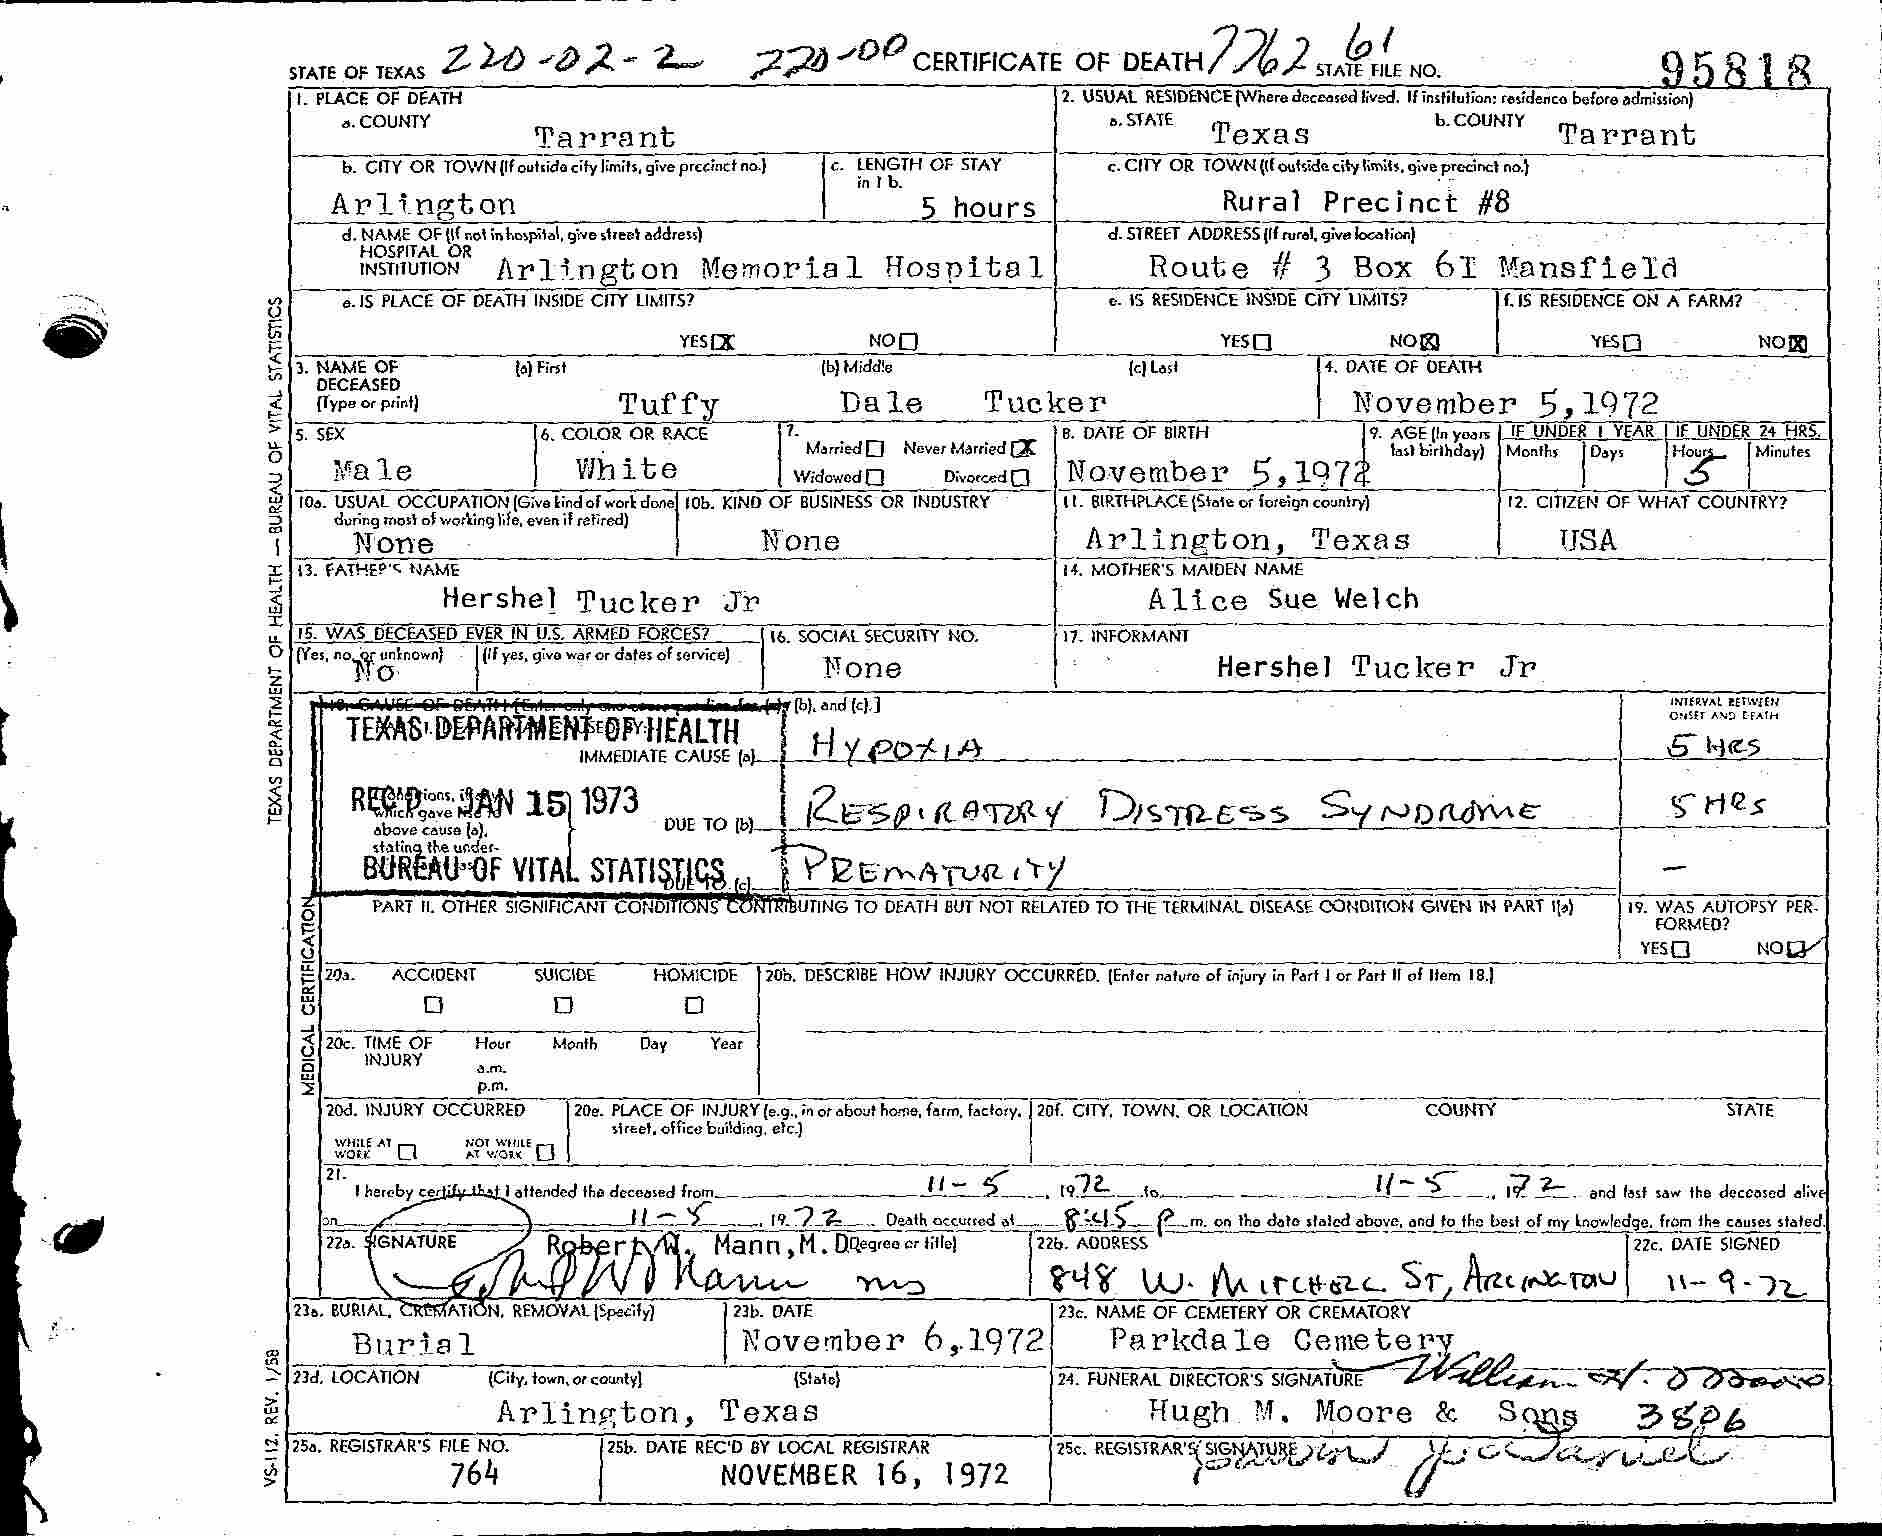 STATE OF TEXAS 220-02-2 220-00 CERTIFICATE OF DEATH 7762 61 STATE FILE NO. 95818
1. PLACE OF DEATH
a. COUNTY
Tarrant
2. USUAL RESIDENCE (Where deceased lived. If institution: residence before admission)
a. STATE Texas b. COUNTY Tarrant
b. CITY OR TOWN (If outside city limits, give precinct no.)
Arlington
c. LENGTH OF STAY
in 1 b.
5 hours
c. CITY OR TOWN (If outside city limits, give precinct no.)
Rural Precinct #8
d. NAME OF (If not in hospital, give street address)
HOSPITAL OR
INSTITUTION Arlington Memorial Hospital
d. STREET ADDRESS (If rural, give location)
Route # 3 Box 61 Mansfield
e. IS PLACE OF DEATH INSIDE CITY LIMITS?
YES X NO
e. IS RESIDENCE INSIDE CITY LIMITS?
YES NO X
f. IS RESIDENCE ON A FARM?
YES NO X
3. NAME OF
DECEASED
(Type or print)
(a) First (b) Middle (c) Last
Tuffy Dale Tucker
4. DATE OF DEATH
November 5,1972
5. SEX
Male
6. COLOR OR RACE
White
7.
Married Never Married X
Widowed Divorced
8. DATE OF BIRTH
November 5,1972
9. AGE (In years
last birthday)
IF UNDER 1 YEAR
Months Days
IF UNDER 24 HRS.
Hours Minutes
5
10a. USUAL OCCUPATION (Give kind of work done
during most of working life, even if retired)
None
10b. KIND OF BUSINESS OR INDUSTRY
None
11. BIRTHPLACE (State or foreign country)
Arlington, Texas
12. CITIZEN OF WHAT COUNTRY?
USA
13. FATHER'S NAME
Hershel Tucker Jr
14. MOTHER'S MAIDEN NAME
Alice Sue Welch
15. WAS DECEASED EVER IN U.S. ARMED FORCES?
(Yes, no, or unknown) (If yes, give war or dates of service)
No
16. SOCIAL SECURITY NO.
None
17. INFORMANT
Hershel Tucker Jr
18. CAUSE OF DEATH [Enter only one cause per line for (a), (b), and (c).]
INTERVAL BETWEEN
ONSET AND DEATH
TEXAS DEPARTMENT OF HEALTH
IMMEDIATE CAUSE (a) HYPOXIA 5 HRS
REC'D JAN 15 1973
which gave rise to
above cause (a),
stating the under-
DUE TO (b) RESPIRATORY DISTRESS SYNDROME 5 HRS
BUREAU OF VITAL STATISTICS
DUE TO (c) PREMATURITY —
PART II. OTHER SIGNIFICANT CONDITIONS CONTRIBUTING TO DEATH BUT NOT RELATED TO THE TERMINAL DISEASE CONDITION GIVEN IN PART I(a)
19. WAS AUTOPSY PER-
FORMED?
YES NO
20a. ACCIDENT SUICIDE HOMICIDE
20b. DESCRIBE HOW INJURY OCCURRED. (Enter nature of injury in Part I or Part II of Item 18.)
20c. TIME OF
INJURY
Hour Month Day Year
a.m.
p.m.
20d. INJURY OCCURRED
WHILE AT
WORK
NOT WHILE
AT WORK
20e. PLACE OF INJURY (e.g., in or about home, farm, factory,
street, office building, etc.)
20f. CITY, TOWN, OR LOCATION COUNTY STATE
21.
I hereby certify that I attended the deceased from 11-5, 1972 to 11-5, 1972 and last saw the deceased alive
on 11-5, 1972. Death occurred at 8:45 P m. on the date stated above, and to the best of my knowledge, from the causes stated.
22a. SIGNATURE Robert W. Mann, M. D. (Degree or title)
Robert W Mann MD
22b. ADDRESS
848 W. MITCHELL ST, ARLINGTON
22c. DATE SIGNED
11-9-72
23a. BURIAL, CREMATION, REMOVAL (Specify)
Burial
23b. DATE
November 6,1972
23c. NAME OF CEMETERY OR CREMATORY
Parkdale Cemetery
23d. LOCATION (City, town, or county) (State)
Arlington, Texas
24. FUNERAL DIRECTOR'S SIGNATURE William H. Moore
Hugh M. Moore & Sons 3806
25a. REGISTRAR'S FILE NO.
764
25b. DATE REC'D BY LOCAL REGISTRAR
NOVEMBER 16, 1972
25c. REGISTRAR'S SIGNATURE
TEXAS DEPARTMENT OF HEALTH — BUREAU OF VITAL STATISTICS
MEDICAL CERTIFICATION
VS-112. REV. 1/58